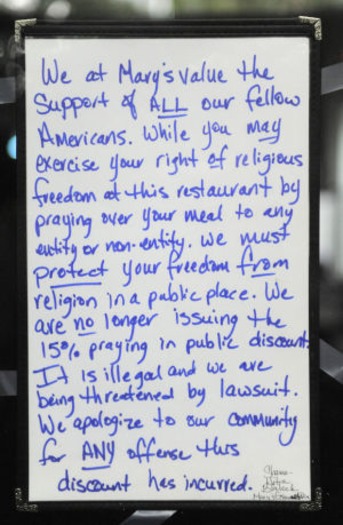 We at Mary's value the
Support of ALL our fellow
Americans. While you may
exercise your right of religious
freedom at this restaurant by
praying over your meal to any
entity or non-entity. we must
protect your freedom from
religion in a public place. We
are no longer issuing the
15% praying in public discount.
It is illegal and we are
being threatened by lawsuit.
We apologize to our community
for ANY offense this
discount has incurred.